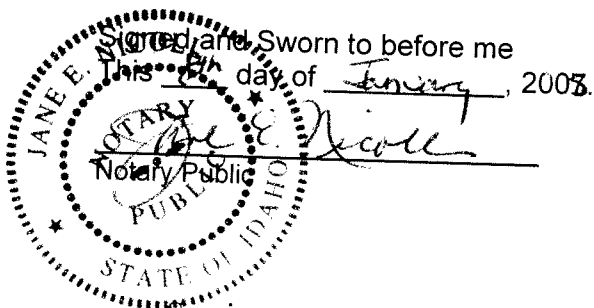 Signed and Sworn to before me
This day of January, 200
Jane E. Nicoll
Notary Public
JANE E.
NOTARY
PUBLIC
STATE OF IDAHO